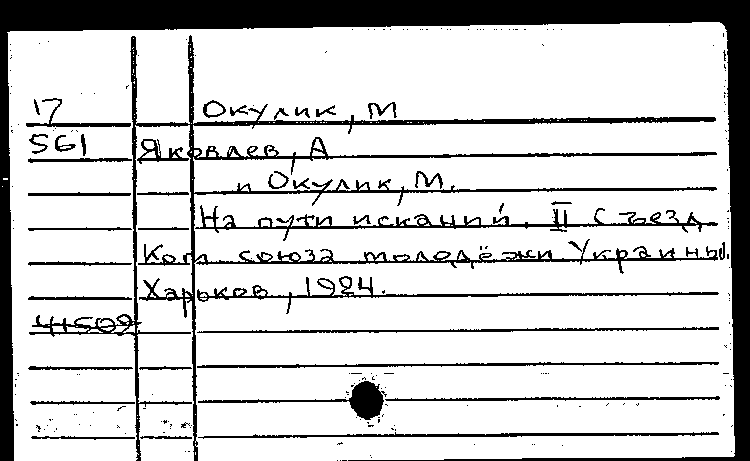 17 Окулик, М
561 Яковлев, А
и Окулик, М.
На пути исканий. II съезд
Ком союза молодёжи Украины.
Харьков, 1924.
41509